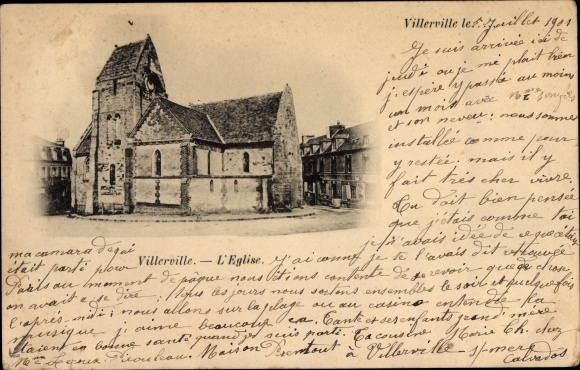 Villerville le 5 Juillet 1901
Je suis arrivée ici de
jeudi ou je me plait bien
j'espère y passé au moins
un mois avec Me
et son neveu: nous somme
installée comme pour
y restée. mais il y
fait très cher vivre.
Tu doit bien pensée
que j'étais comme toi
Villerville. — L'Eglise.
ma camara de qui
était parti pour
Paris au moment de pâque nous étions contente de se revoir
on avait à se dire: tous les jours nous sortons ensembles le soir et quelque fois
l'après-midi nous allons sur la plage ou au casino entendre la
musique j'aime beaucoup ça. Tante et ses enfants grand'mère
étaient en bonne santé quand je suis parti. Ta cousine Marie Th. chez
Me Maison à Villerville s/mer
Calvados